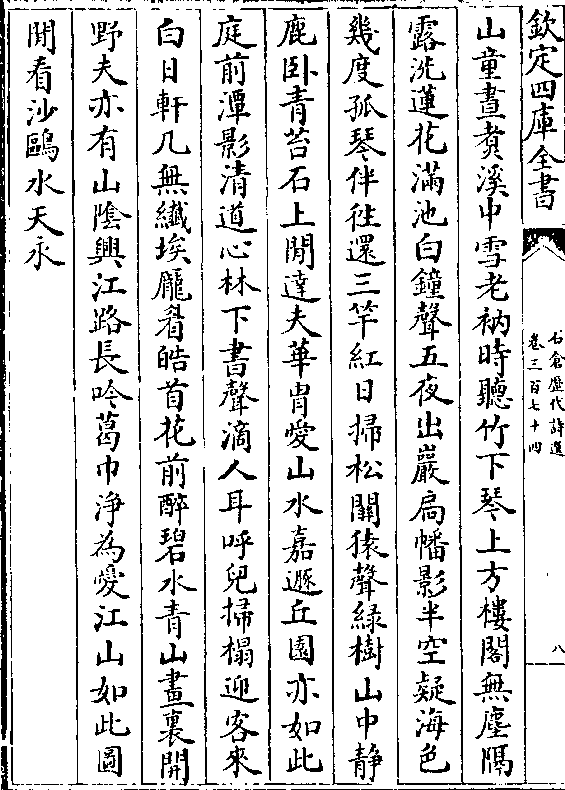 欽定四庫全書
石倉歷代詩選
卷三百七十四
八
山童晝煮溪中雪老衲時聽竹下琴上方樓閣無塵隔
露洗蓮花滿池白鐘聲五夜出巖扃幡影半空疑海色
幾度孤琴伴徃還三竿紅日掃松關猿聲綠樹山中静
鹿卧青苔石上閒達夫華胄愛山水嘉遯丘園亦如此
庭前潭影清道心林下書聲滴人耳呼兒掃榻迎客來
白日軒几無纖埃龎眉皓首花前醉碧水青山畫裏開
野夫亦有山隂興江路長吟葛巾淨為愛江山如此圖
閒看沙鷗水天永